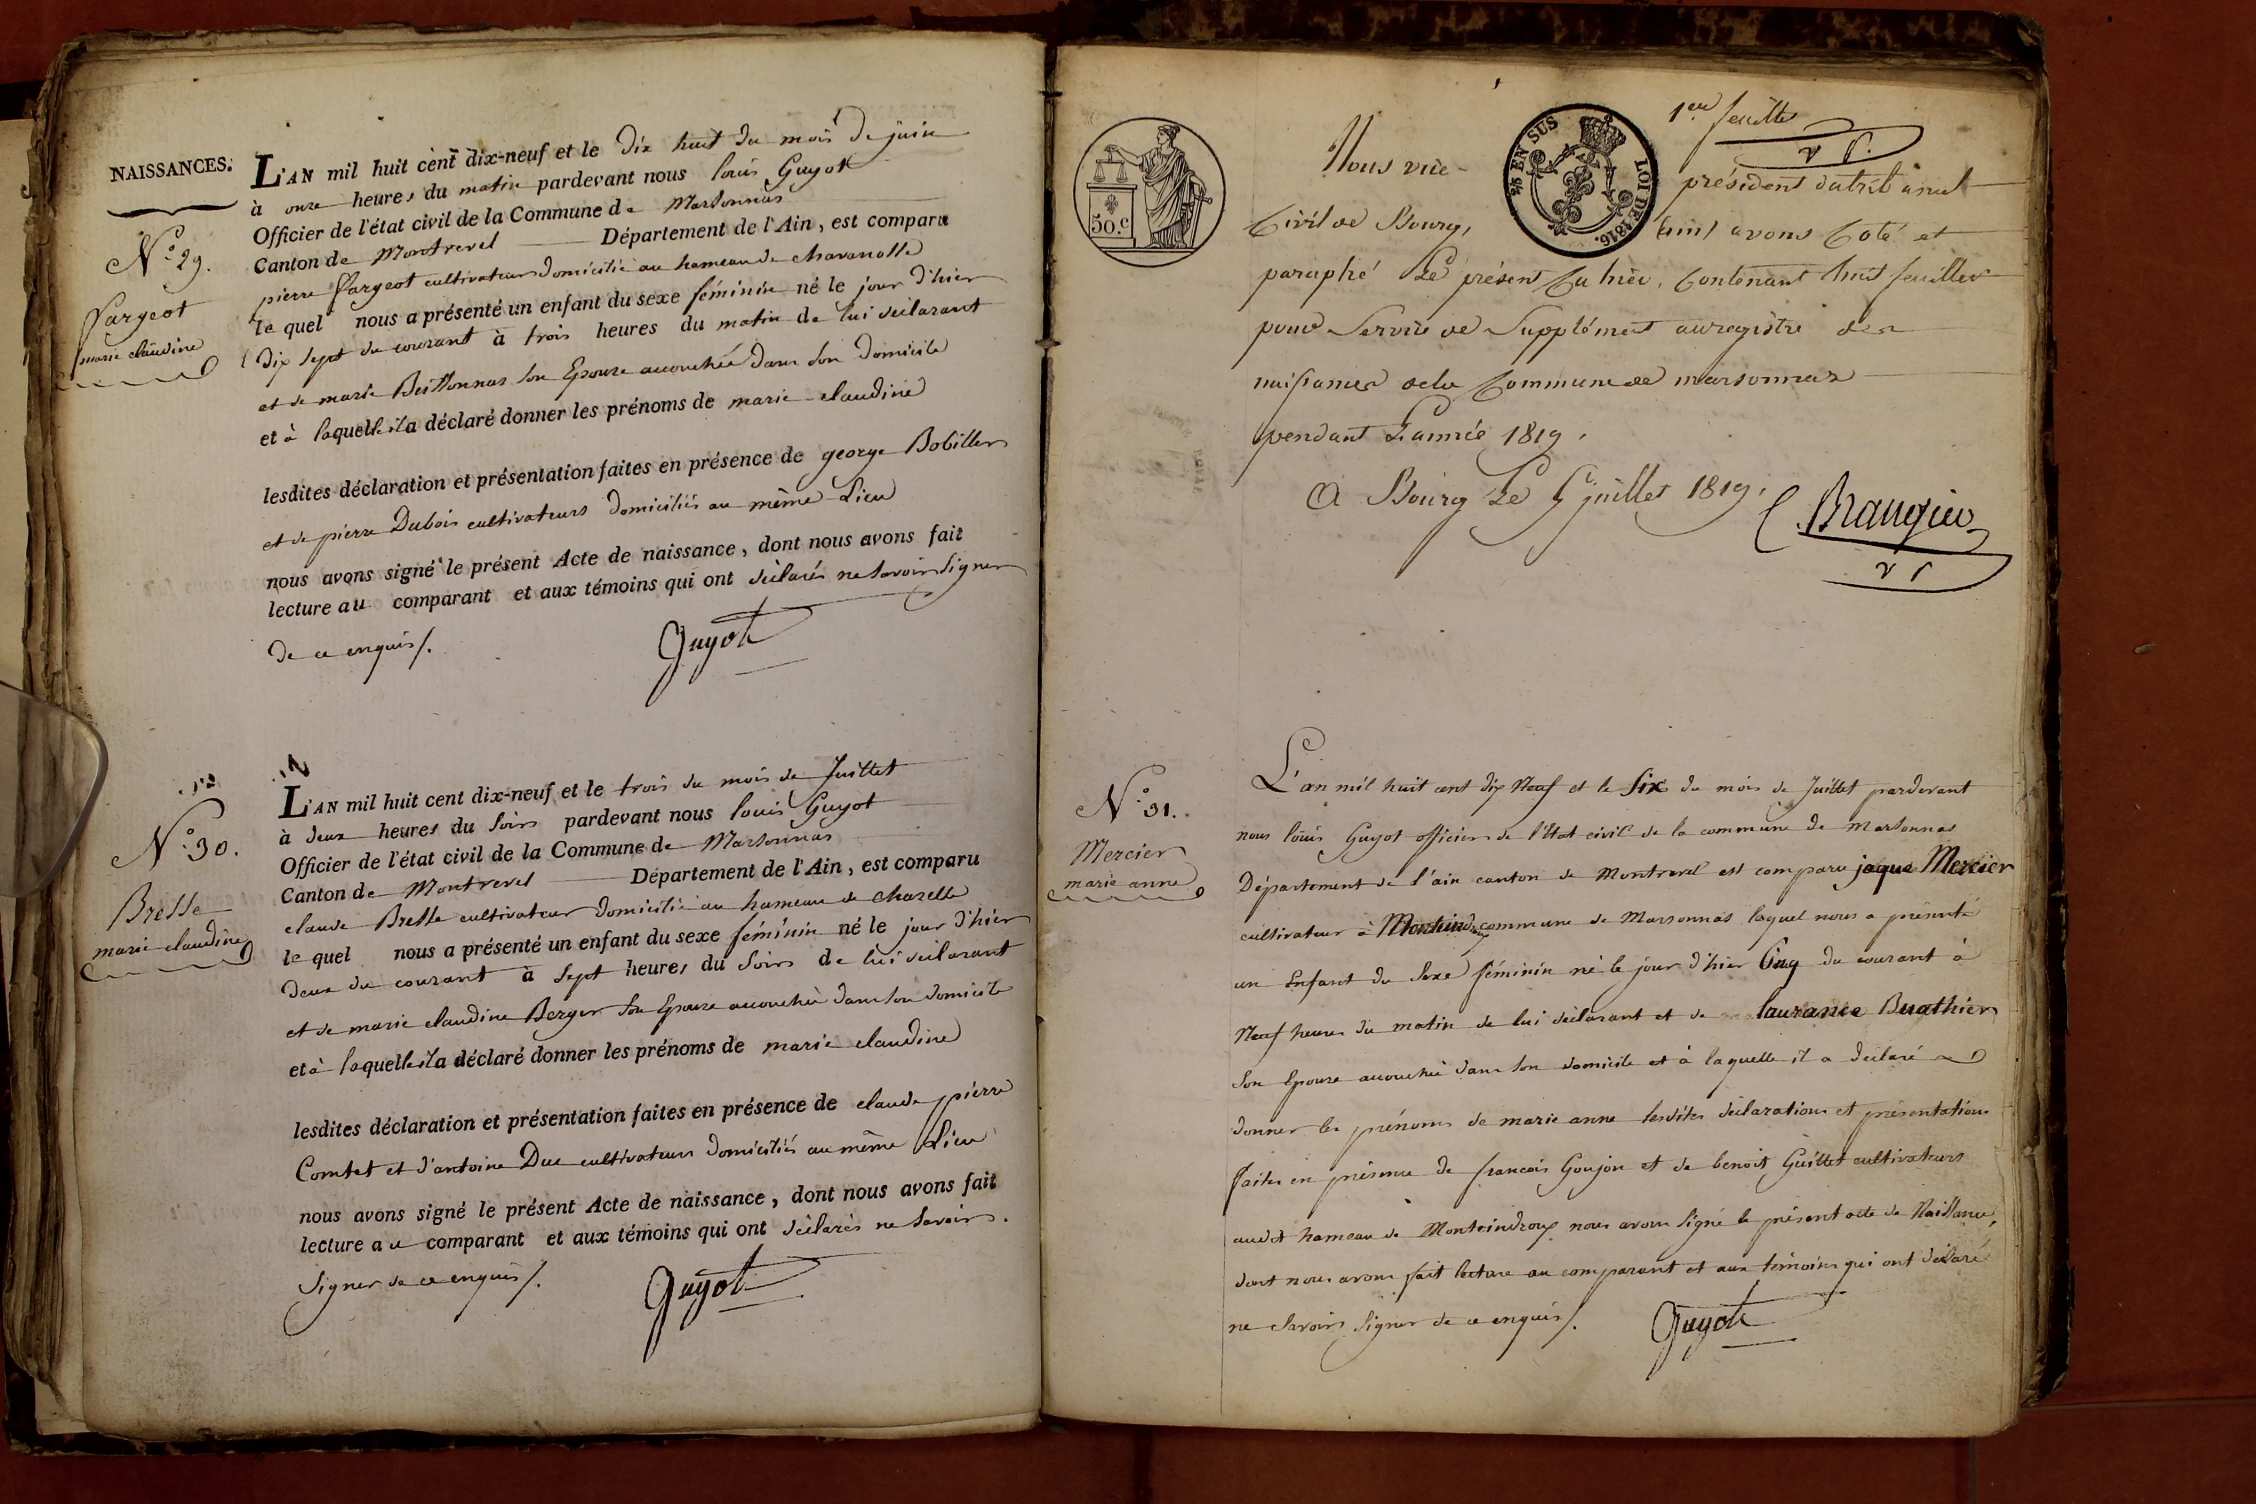 NAISSANCES.
N.º 29.
Fargeot
marie claudine
L'AN mil huit cent dix-neuf et le dix huit du mois de juin
à onze heures du matin pardevant nous louis Guyot
Officier de l'état civil de la Commune de Marsonnas
Canton de Montrevel Département de l'Ain, est comparu
pierre Fargeot cultivateur domicilié au hameau de
le quel nous a présenté un enfant du sexe féminin né le jour d'hier
dix sept du courant à trois heures du matin de lui déclarant
et de marie son Epouse accouchée dans son domicile
et à laquelle il a déclaré donner les prénoms de marie claudine
lesdites déclaration et présentation faites en présence de george Bobillon
et de pierre Dubois cultivateurs domiciliés au même Lieu
nous avons signé le présent Acte de naissance, dont nous avons fait
lecture au comparant et aux témoins qui ont déclarés ne savoir signer
de ce enquis/.
Guyot
N.º 30.
Bresse
marie claudine
L'AN mil huit cent dix-neuf et le trois du mois de Juillet
à deux heures du soir pardevant nous louis Guyot
Officier de l'état civil de la Commune de Marsonnas
Canton de Montrevel Département de l'Ain, est comparu
claude Bresse cultivateur domicilié au hameau de chazelle
le quel nous a présenté un enfant du sexe féminin né le jour d'hier
deux du courant à sept heures du soir de lui déclarant
et de marie claudine Berger son Epouse accouchée dans son domicile
et à laquelle il a déclaré donner les prénoms de marie claudine
lesdites déclaration et présentation faites en présence de claude pierre
Comtet et d'antoine Duc cultivateurs domiciliés au même Lieu
nous avons signé le présent Acte de naissance, dont nous avons fait
lecture au comparant et aux témoins qui ont déclarés ne savoir
signer de ce enquis/.
Guyot
50.c
25 EN SUS
LOI DE 1816.
1ere feuille
Nous vice-président du tribunal
Civil de Bourg, (ain) avons Coté et
paraphé Le présent Cahier, Contenant huit feuilles
pour Servir de Supplément au registre des
naissances de la Commune de marsonnas
pendant L'année 1819.
A Bourg Le 5 juillet 1819.
N.º 31.
Mercier
marie anne
L'an mil huit cent dix Neuf et le Six du mois de Juillet pardevant
nous louis Guyot officier de l'état civil de la commune de Marsonnas
Département de l'ain canton de Montrevel est comparu jaque Mercier
cultivateur à commune de Marsonnas laquel nous a présenté
un Enfant du sexe féminin né le jour d'hier Cinq du courant à
Neuf heures du matin de lui déclarant et de laurance Buathier
son Epouse accouchée dans son domicile et à laquelle il a déclaré
donner les prénoms de marie anne lesdites déclaration et présentation
faites en présence de francois Goujon et de benoit Guillet cultivateurs
audit hameau de Montcindroux nous avons signé le présent acte de Naissance,
dont nous avons fait lecture au comparant et aux témoins qui ont déclaré
ne savoir signer de ce enquis/.
Guyot